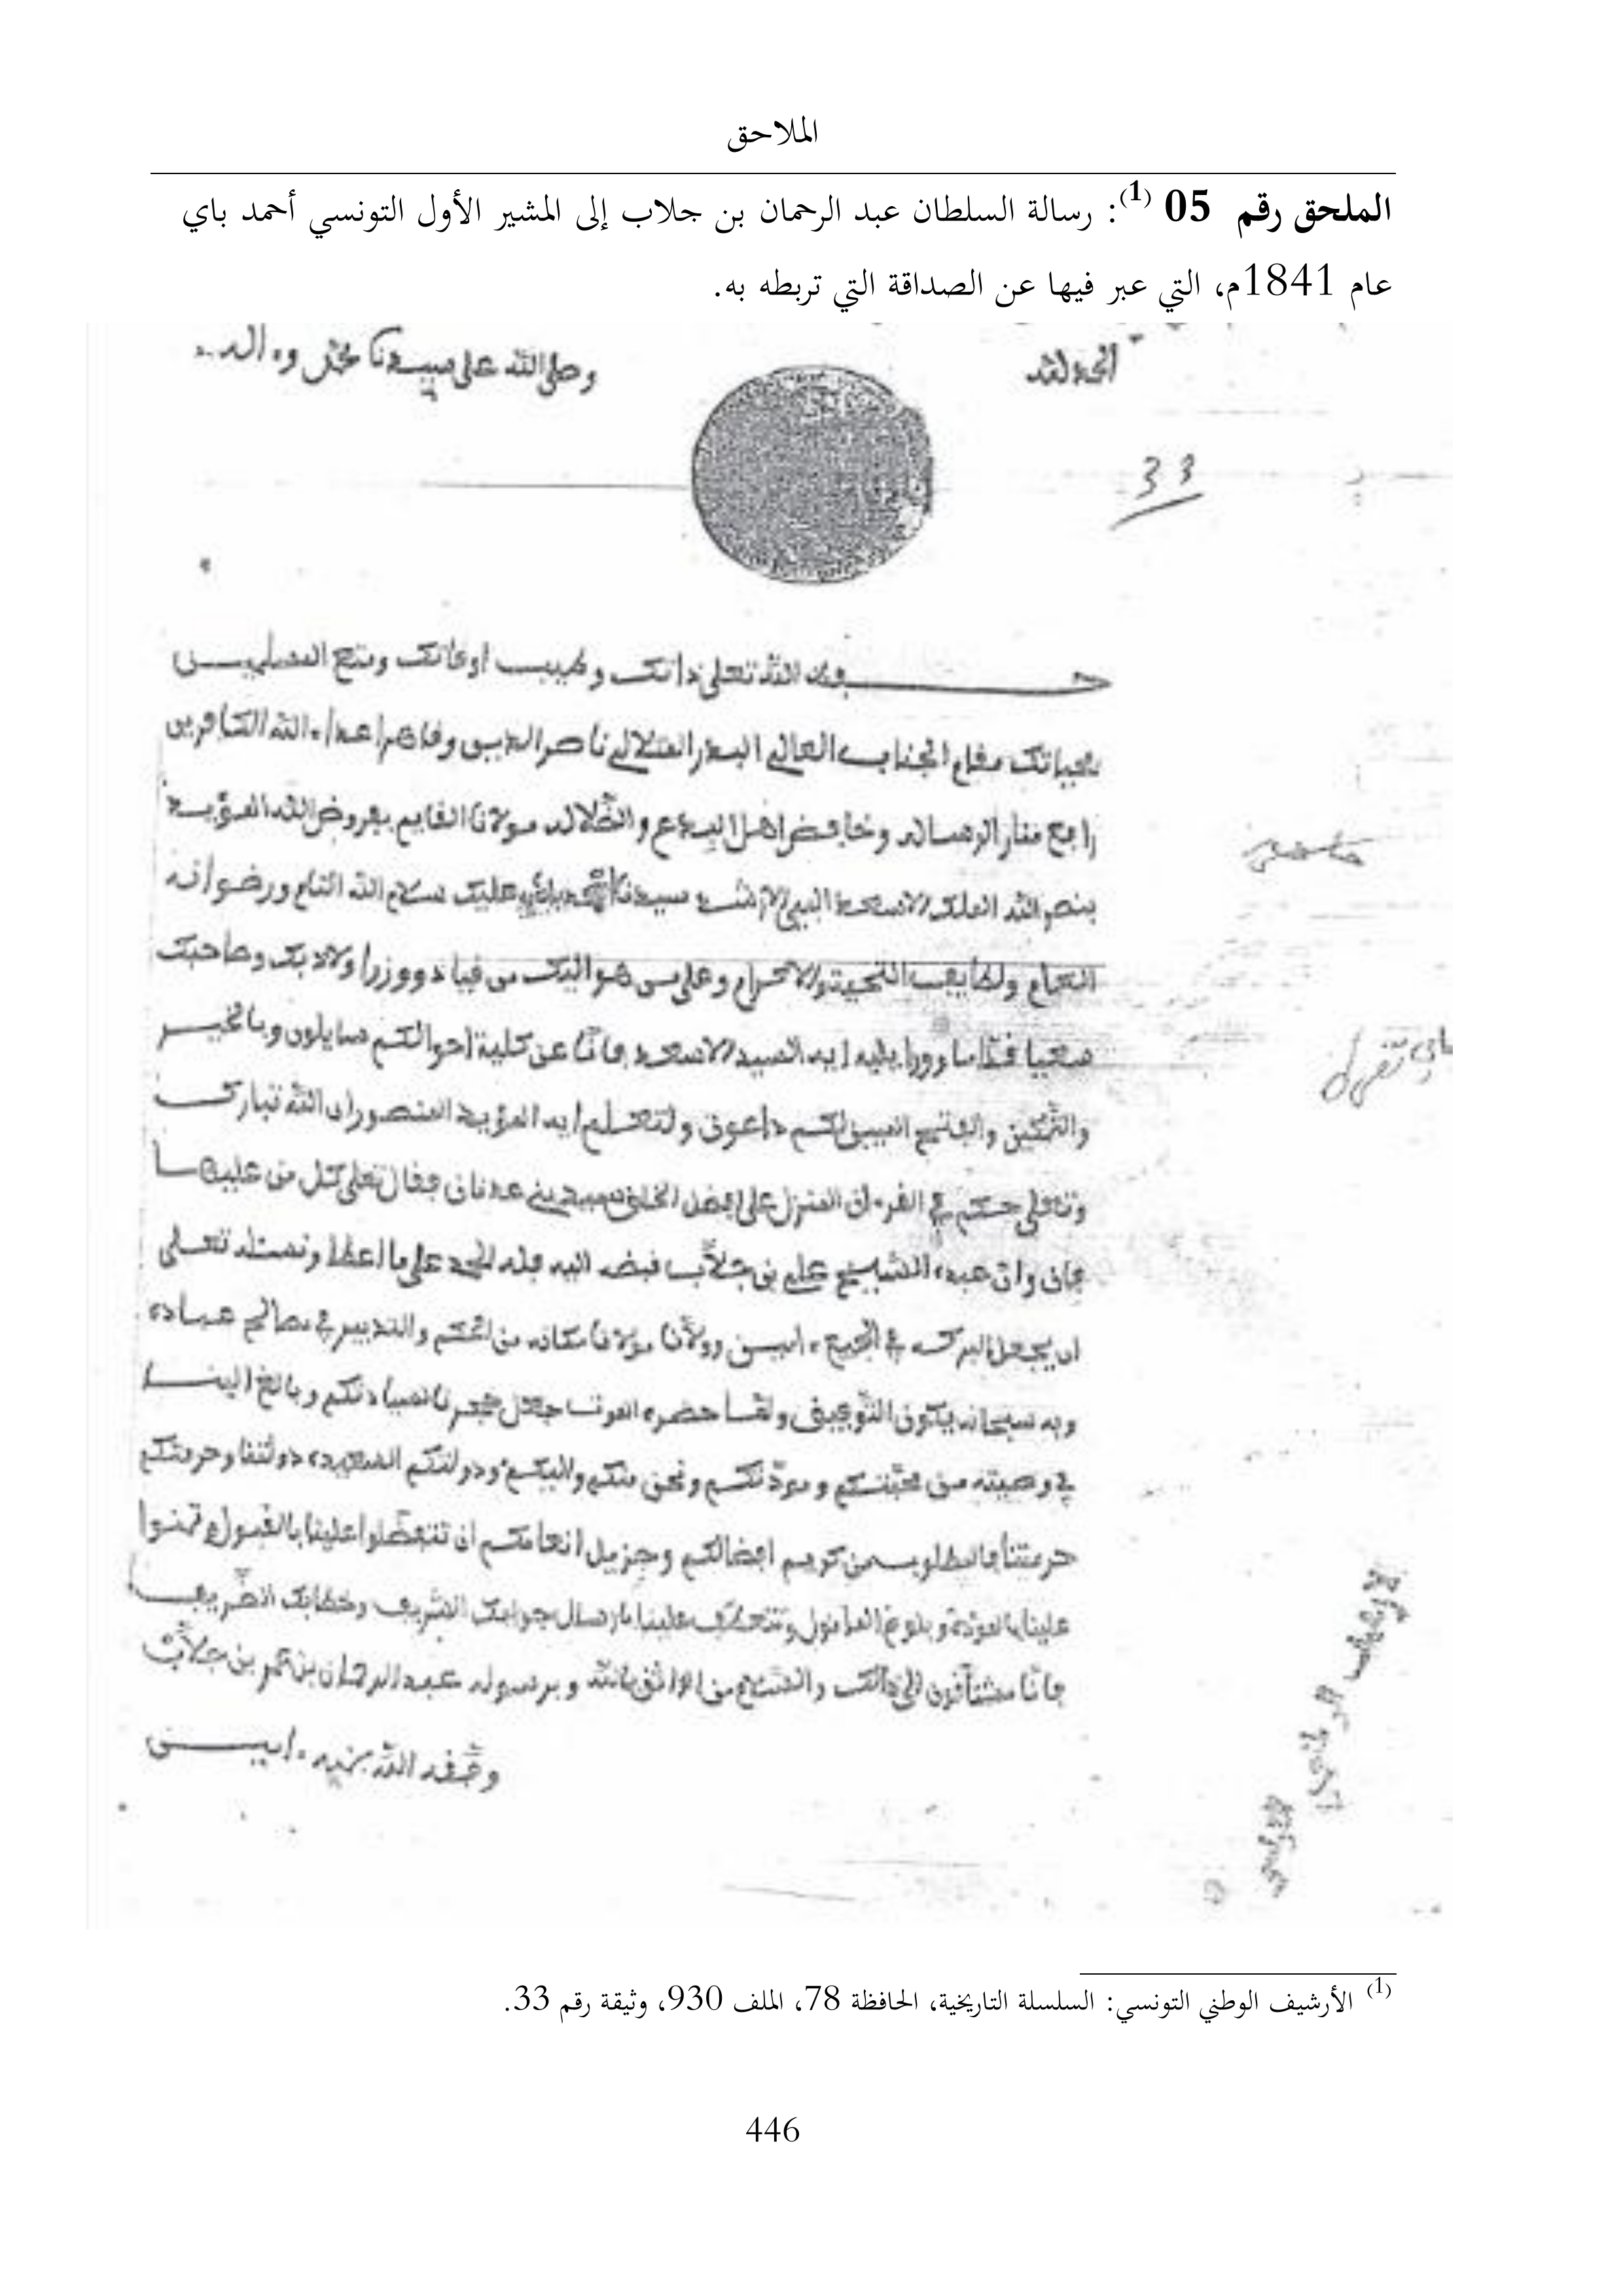 الملاحق
الملحق رقم 05 (1): رسالة السلطان عبد الرحمان بن جلاب إلى المشير الأول التونسي أحمد باي
عام 1841م، التي عبر فيها عن الصداقة التي تربطه به.
الحمد لله وصلى الله على سيدنا محمد وءاله
33
حفظ الله تعلى ذاتك وطيب اوقاتك ومتع المسلمين
بحياتك مقام الجناب العالي البدر المتلالي ناصر الدين وقاهر اعداء الله الكافرين
رافع منار الرسالة وخافض اهل البدع والضلالة مولانا القايم بفروض الله المؤيد
بنصر الله الملك الاسعد سيدنا احمد عليك سلام الله التام ورضوانه
ولطايف التحية والاكرام وعلى من هو اليك من قياد ووزرا وصاحبك
ايه السيد الاسعد فانا عن كلية احوالكم سايلون وبالخير
والتمكين والفتح المبين لكم داعون ولتعلم ايه المؤيد المنصور ان الله تبارك
وتعلى حكم في القرءان المنزل على افضل الخلق سيد بني عدنان فقال تعلى كل من عليها
فان وان عبده الشيخ علي بن جلاب قبض اليه فله الحمد على ما اعطا ونسئله تعلى
ان يجعل البركة في الجميع ءامين وولانا مولانا مكانه من الحكم والتدبير في مصالح عباده
وبه سبحانه يكون التوفيق ولما حضره الموت لسيادتكم وبالغ الينا
في وصيته من محبتكم ومودتكم ونحن منكم واليكم ودولتكم السعيدة دولتنا وحرمتكم
حرمتنا فالمطلوب من كريم افضالكم وجزيل انعامكم ان تتفضلوا علينا بالقبول وتمنوا
علينا بالمودة وبلوغ المأمول علينا بارسال جوابك الشريف وخطابك
فانا مشتاقون الى ذالك والسلام من الواثق بالله وبرسوله عبد الرحمان بن عمر بن جلاب
وفقه الله بمنه ءامين
(1) الأرشيف الوطني التونسي: السلسلة التاريخية، الحافظة 78، الملف 930، وثيقة رقم 33.
446